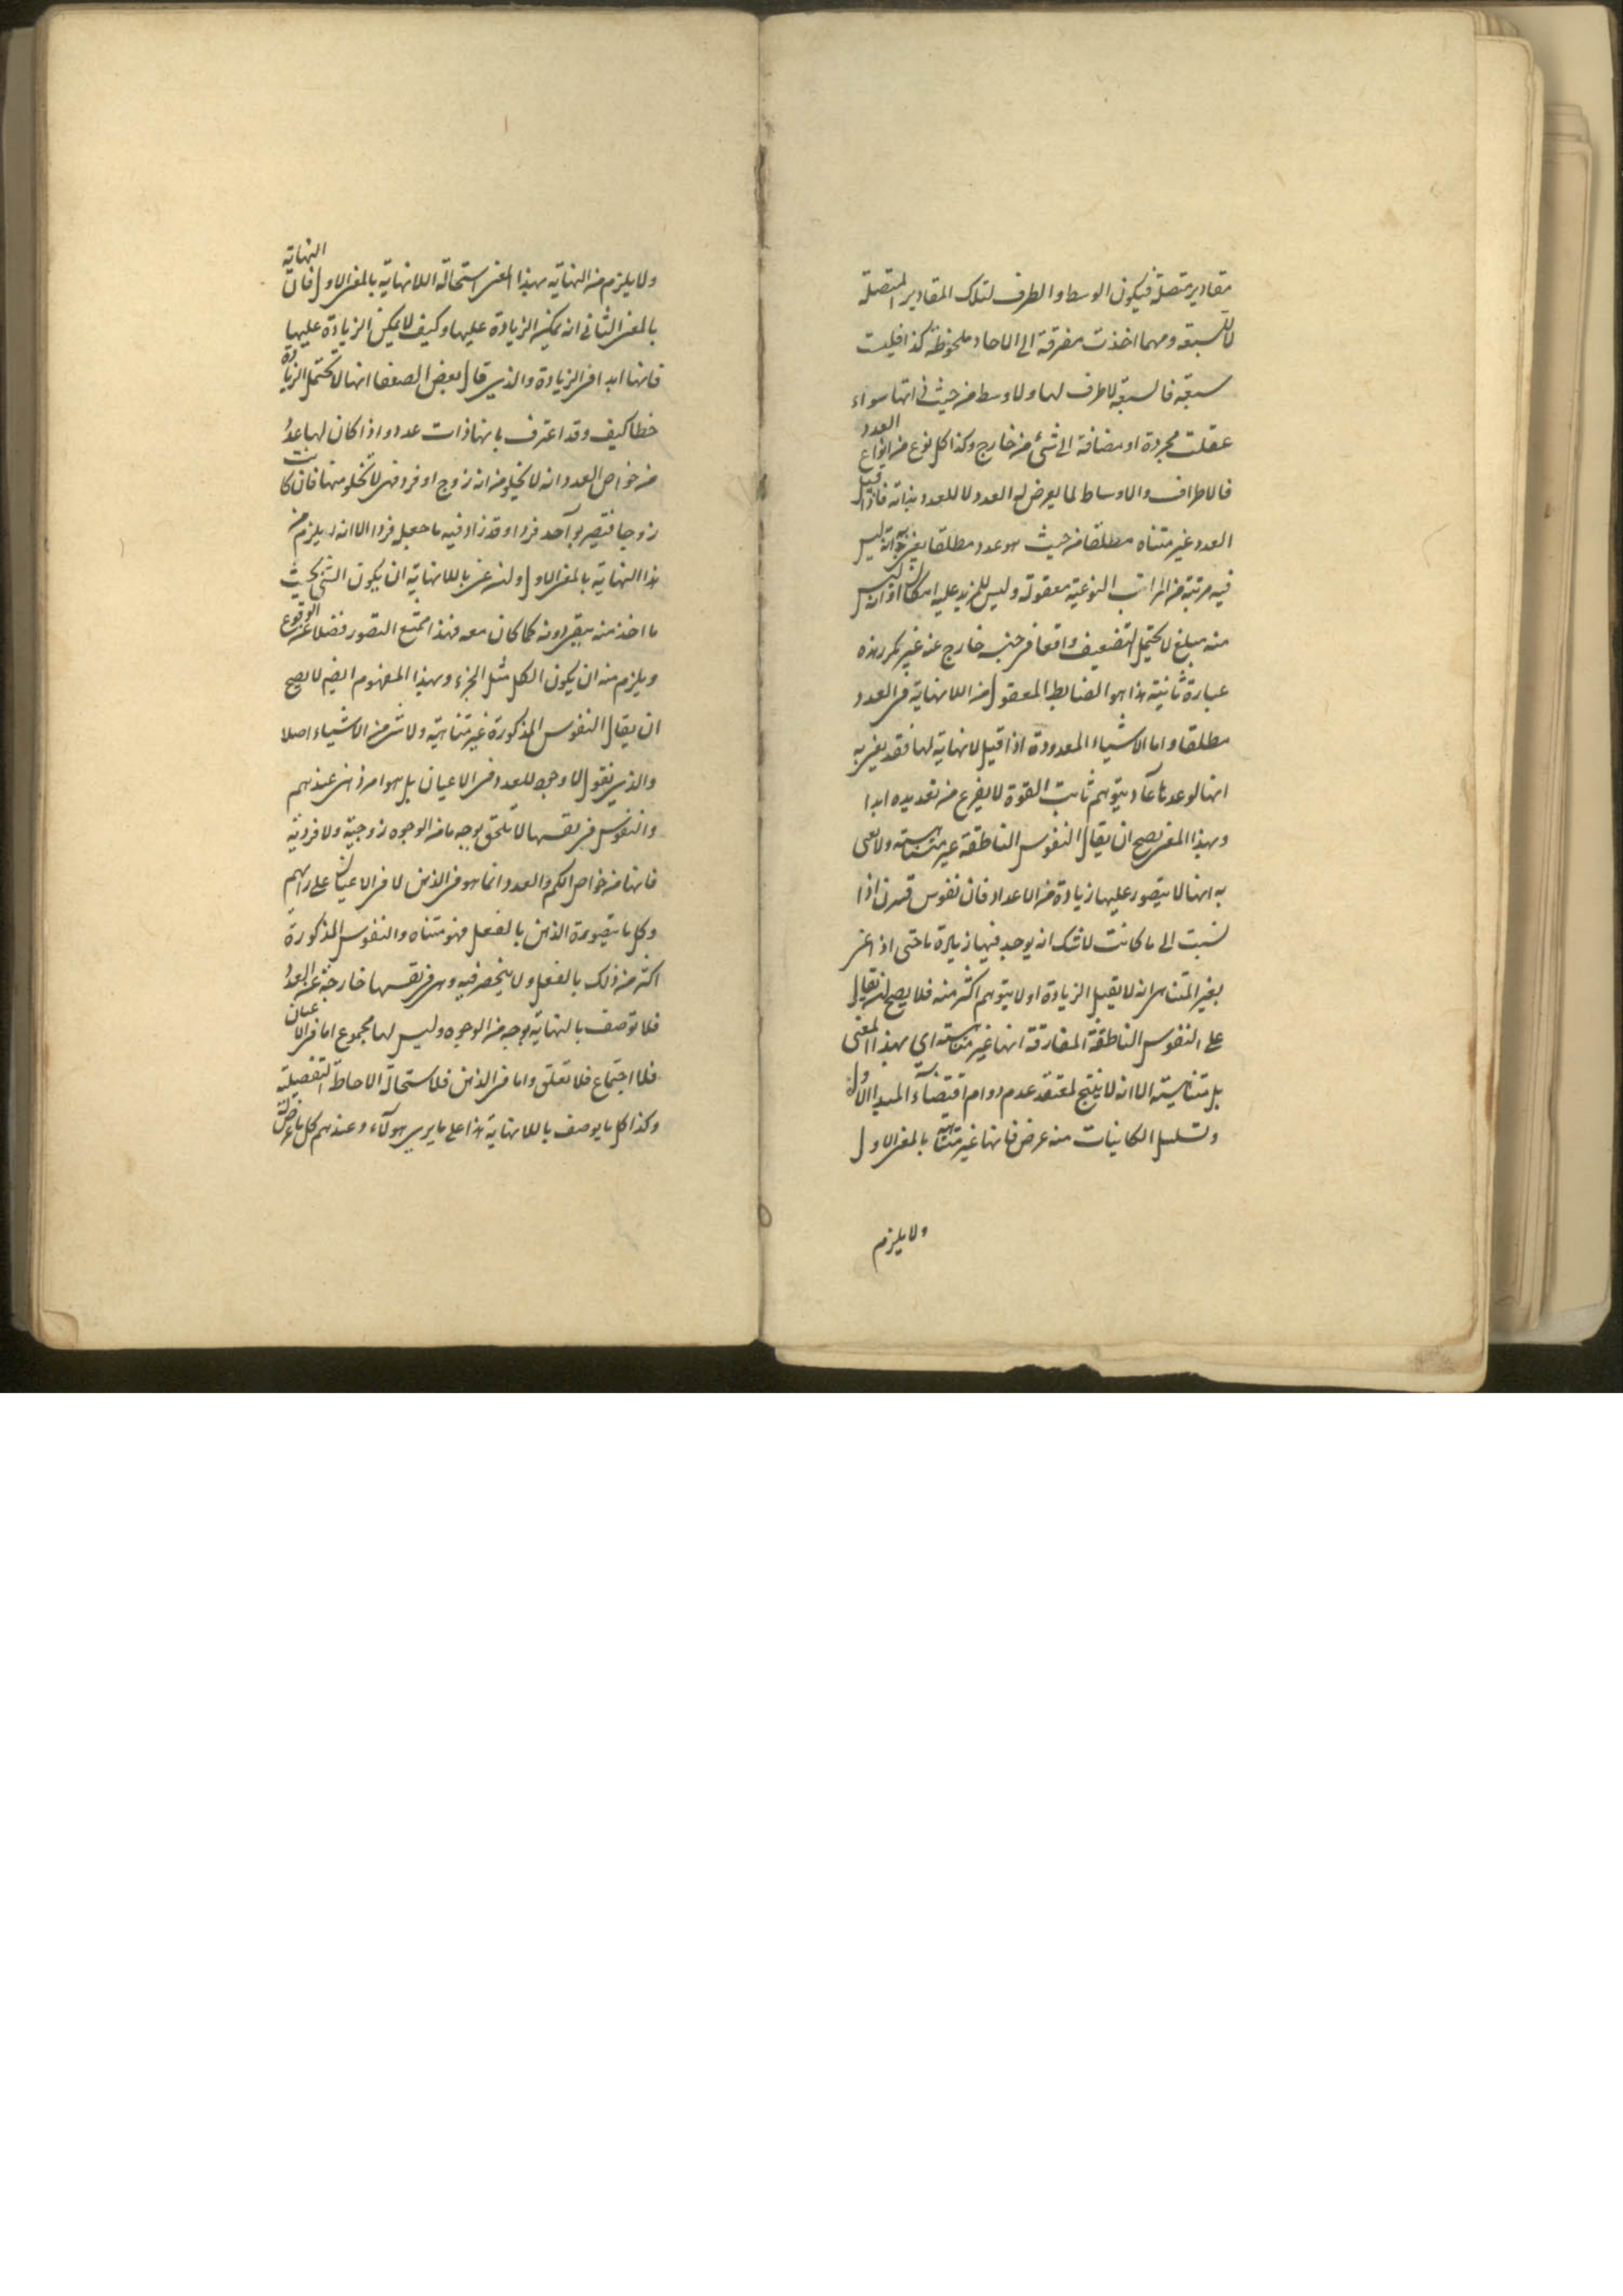 مقادير متصلة فيكون الوسط والطرف لتلك المقادير المتصلة
لا للسبعة ومهما اخذت متفرقة الى الاحاد ملحوظة كذا فليست
سبعة فالسبعة لا طرف لها ولا وسط من حيث ذاتها سواء
عقلت مجردة او مضافة الى شئ من خارج وكذا كل نوع من انواع العدد
فالاطراف والاوساط لما يعرض له العدد لا للعدد بذاته فاذا قيل
العدد غير متناه مطلقا من حيث هو عدد مطلقا يعنى به انه ليس
فيه مرتبة من المراتب النوعية معقولة وليس للمزيد عليه امكان او انه ليس
منه مبلغ لا يحتمل التضعيف واقعا من جنسه خارج عنه غير مكرر هذه
عبارة ثانية هذا هو الضابط المعقول من اللانهاية فى العدد
مطلقا واما الاشياء المعدودة اذا قيل لا نهاية لها فقد يعنى به
انها لو عدها عاد يتوهم ثابت القوة لا يفرغ من تعديده ابدا
وبهذا المعنى يصح ان يقال النفوس الناطقة غير متناهية ولا يعنى
به انها لا يتصور عليها زيادة من الاعداد فان نفوس قرن اذا
نسبت الى ما كانت لا شك انه يوجد فيها زيادة ما حتى اذا عنى
بغير المتناهى انه لا يقبل الزيادة او لا يتوهم اكثر منه فلا يصح ان يقال
على النفوس الناطقة المفارقة انها غير متناهية اي بهذا المعنى
بل متناهية الا انه لا ينتج لمعتقد عدم دوام اقتضاء المبدا الاول
وتسلسل الكاينات منه عرض فانها غير متناهية بالمعنى الاول
ولا يلزم
ولا يلزم من النهاية بهذا المعنى استحالة اللانهاية بالمعنى الاول فان النهاية
بالمعنى الثانى انه يمكن الزيادة عليها وكيف لا يمكن الزيادة عليها
فانها ابدا فى الزيادة والذي قال بعض الضعفا انها لا تحتمل الزيادة
خطا كيف وقد اعترف بانها ذات عدد واذا كان لها عدد
من خواص العدد انه لا يخلو من انه زوج او فرد فهى لا تخلو منها فان كانت
زوجا فتصير بواحد فردا وقد زاد فيه ما جعل فردا الا انه لا يلزم من
هذا النهاية بالمعنى الاول ولئن عنى باللانهاية ان يكون الشئ بحيث
ما اخذ منه يبقى دونه كما كان معه فهذا ممتنع التصور فضلا عن الوقوع
ويلزم منه ان يكون الكل مثل الجزء وبهذا المفهوم ايضا لا يصح
ان يقال النفوس المذكورة غير متناهية ولا شئ من الاشياء اصلا
والذي نقول لا وجود للعدد فى الاعيان بل هو امر ذهنى عندهم
والنفوس فى نفسها لا تلحق بوجه ما من الوجوه زوجية ولا فردية
فانها من خواص الكم والعدد وانما هو فى الذهن لا فى الاعيان على رايهم
وكل ما يتصوره الذهن بالفعل فهو متناه والنفوس المذكورة
اكثر من ذلك بالفعل ولا ينحصر فيه وهى فى نفسها خارجة عن العدد
فلا توصف بالنهاية بوجه من الوجوه وليس لها مجموع اما فى الاعيان
فلا اجتماع فلا تعلق واما فى الذهن فلاستحالة الاحاطة التفصيلية
وكذا كل ما يوصف باللانهاية هذا على ما يرى هولاء وعندهم كل ما